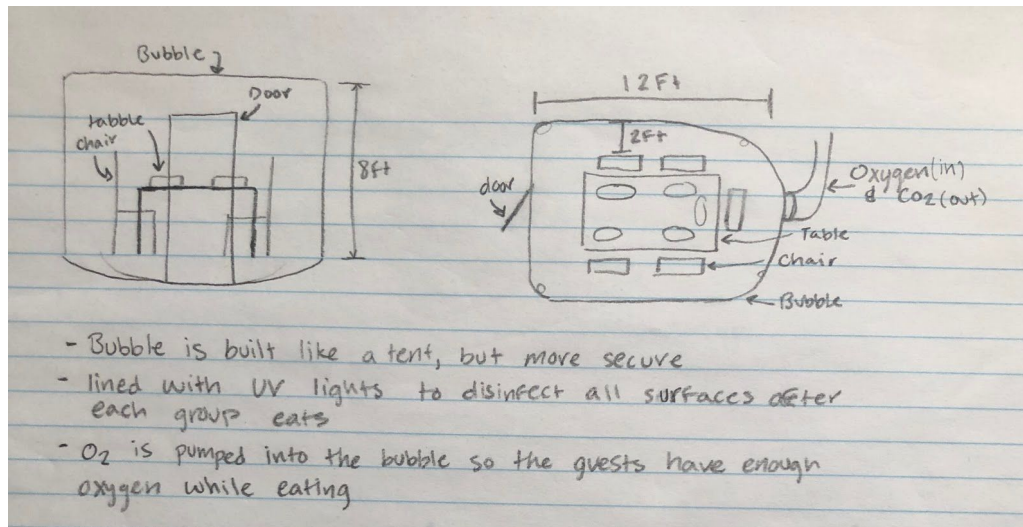 Bubble
Door
tabble
chair
8ft
12Ft
2Ft
door
Oxygen(in)
& CO2(out)
Table
Chair
Bubble
- Bubble is built like a tent, but more secure
- lined with UV lights to disinfect all surfaces after
each group eats
- O2 is pumped into the bubble so the guests have enough
oxygen while eating